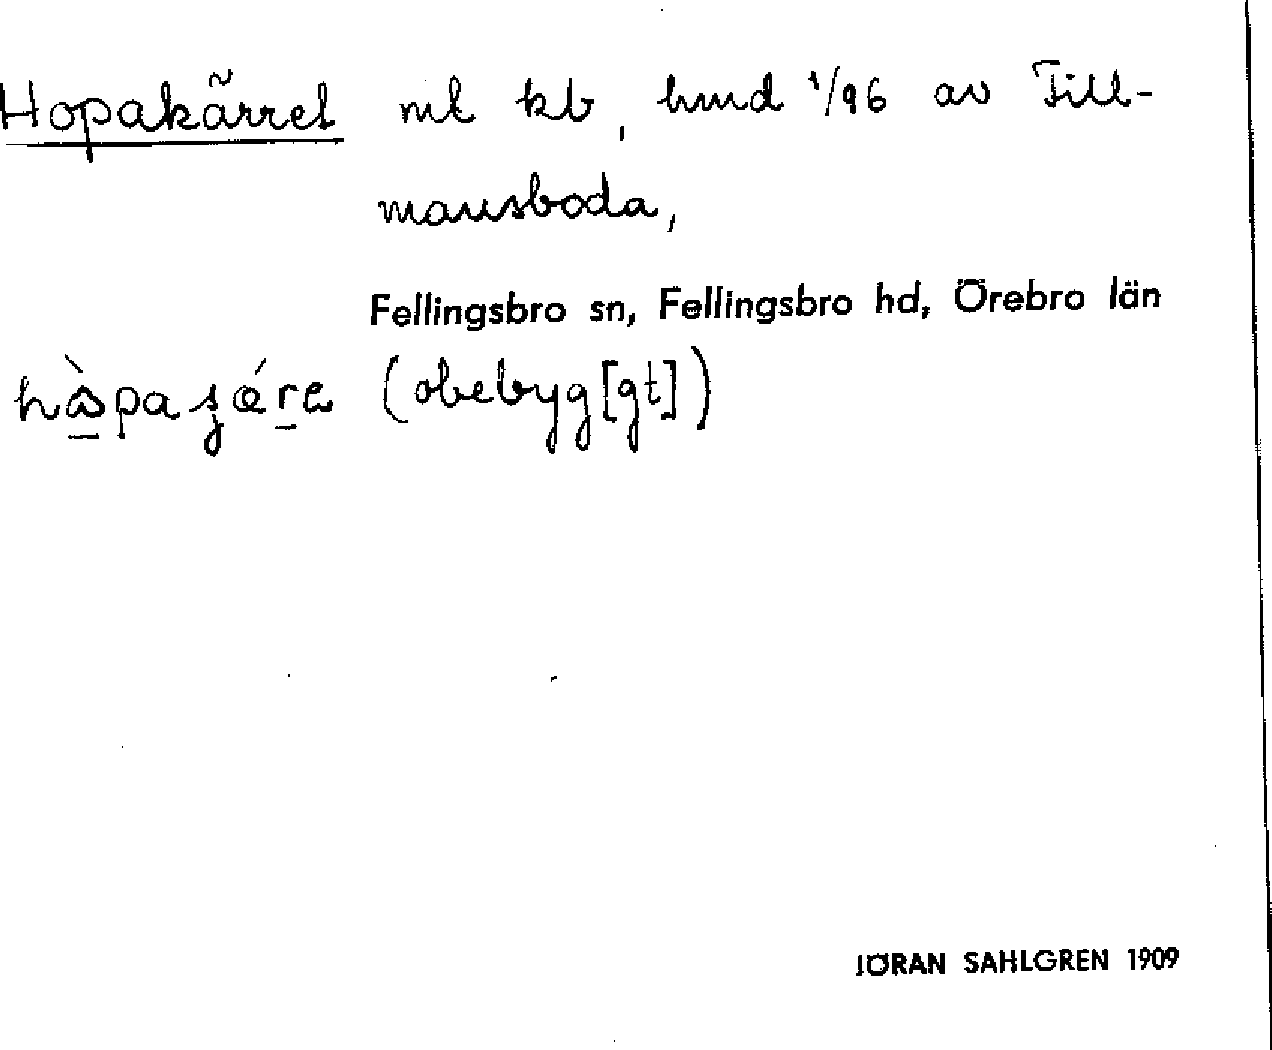 Hopakärret ml kb, hmd 1/96 av Till-
mansboda,
Fellingsbro sn, Fellingsbro hd, Örebro län
(obebyg[gt])
JÖRAN SAHLGREN 1909